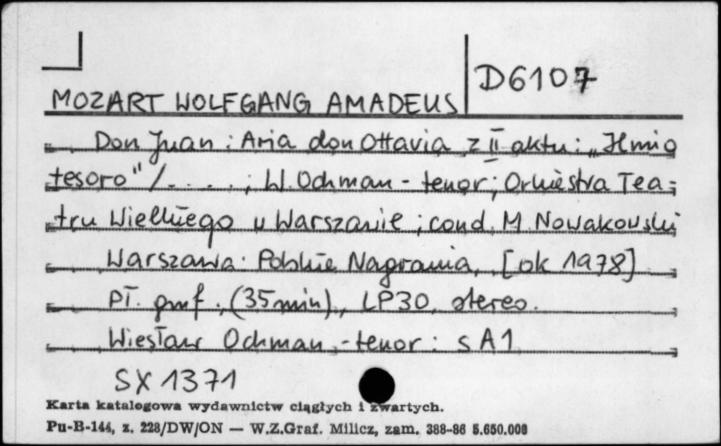 D6107
MOZART WOLFGANG AMADEUS
Don Juan : Aria don Ottavia z II aktu : „Il mio
tesoro" / . . . . ; W. Ochman - tenor ; Orkiestra Tea-
tru Wielkiego w Warszawie ; cond. M. Nowakowski
Warszawa : Polskie Nagrania, [ok 1978]
Pł. gmf. , (35 min)., LP30, stereo.
Wiesław Ochman - tenor : s A1
SX 1371
Karta katalogowa wydawnictw ciągłych i zwartych.
Pu-B-144, z. 228/DW/ON — W.Z.Graf. Milicz, zam. 388-86 5.650.000